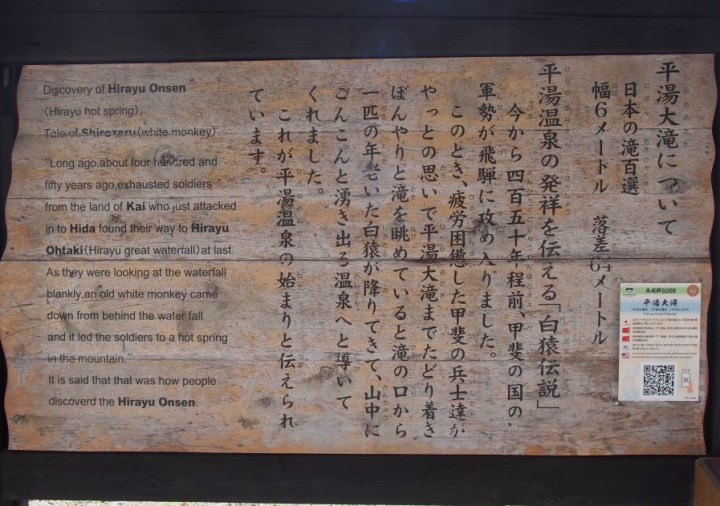 平湯大滝について
日本の滝百選
幅６メートル　落差64メートル
平湯温泉の発祥を伝える「白猿伝説」
今から四百五十年程前、甲斐の国の
軍勢が飛騨に攻め入りました。
このとき、疲労困憊した甲斐の兵士達が
やっとの思いで平湯大滝までたどり着き
ぼんやりと滝を眺めていると滝の口から
一匹の年老いた白猿が降りてきて、山中に
こんこんと湧き出る温泉へと導いて
くれました。
これが平湯温泉の始まりと伝えられ
ています。
Discovery of Hirayu Onsen
(Hirayu hot spring),
Tale of Shirozaru(white monkey)
"Long ago,about four hundred and
fifty years ago,exhausted soldiers
from the land of Kai who just attacked
in to Hida found their way to Hirayu
Ohtaki(Hirayu great waterfall)at last.
As they were looking at the waterfall
blankly,an old white monkey came
down from behind the water fall
and it led the soldiers to a hot spring
in the mountain."
It is said that that was how people
discoverd the Hirayu Onsen.
平湯大滝